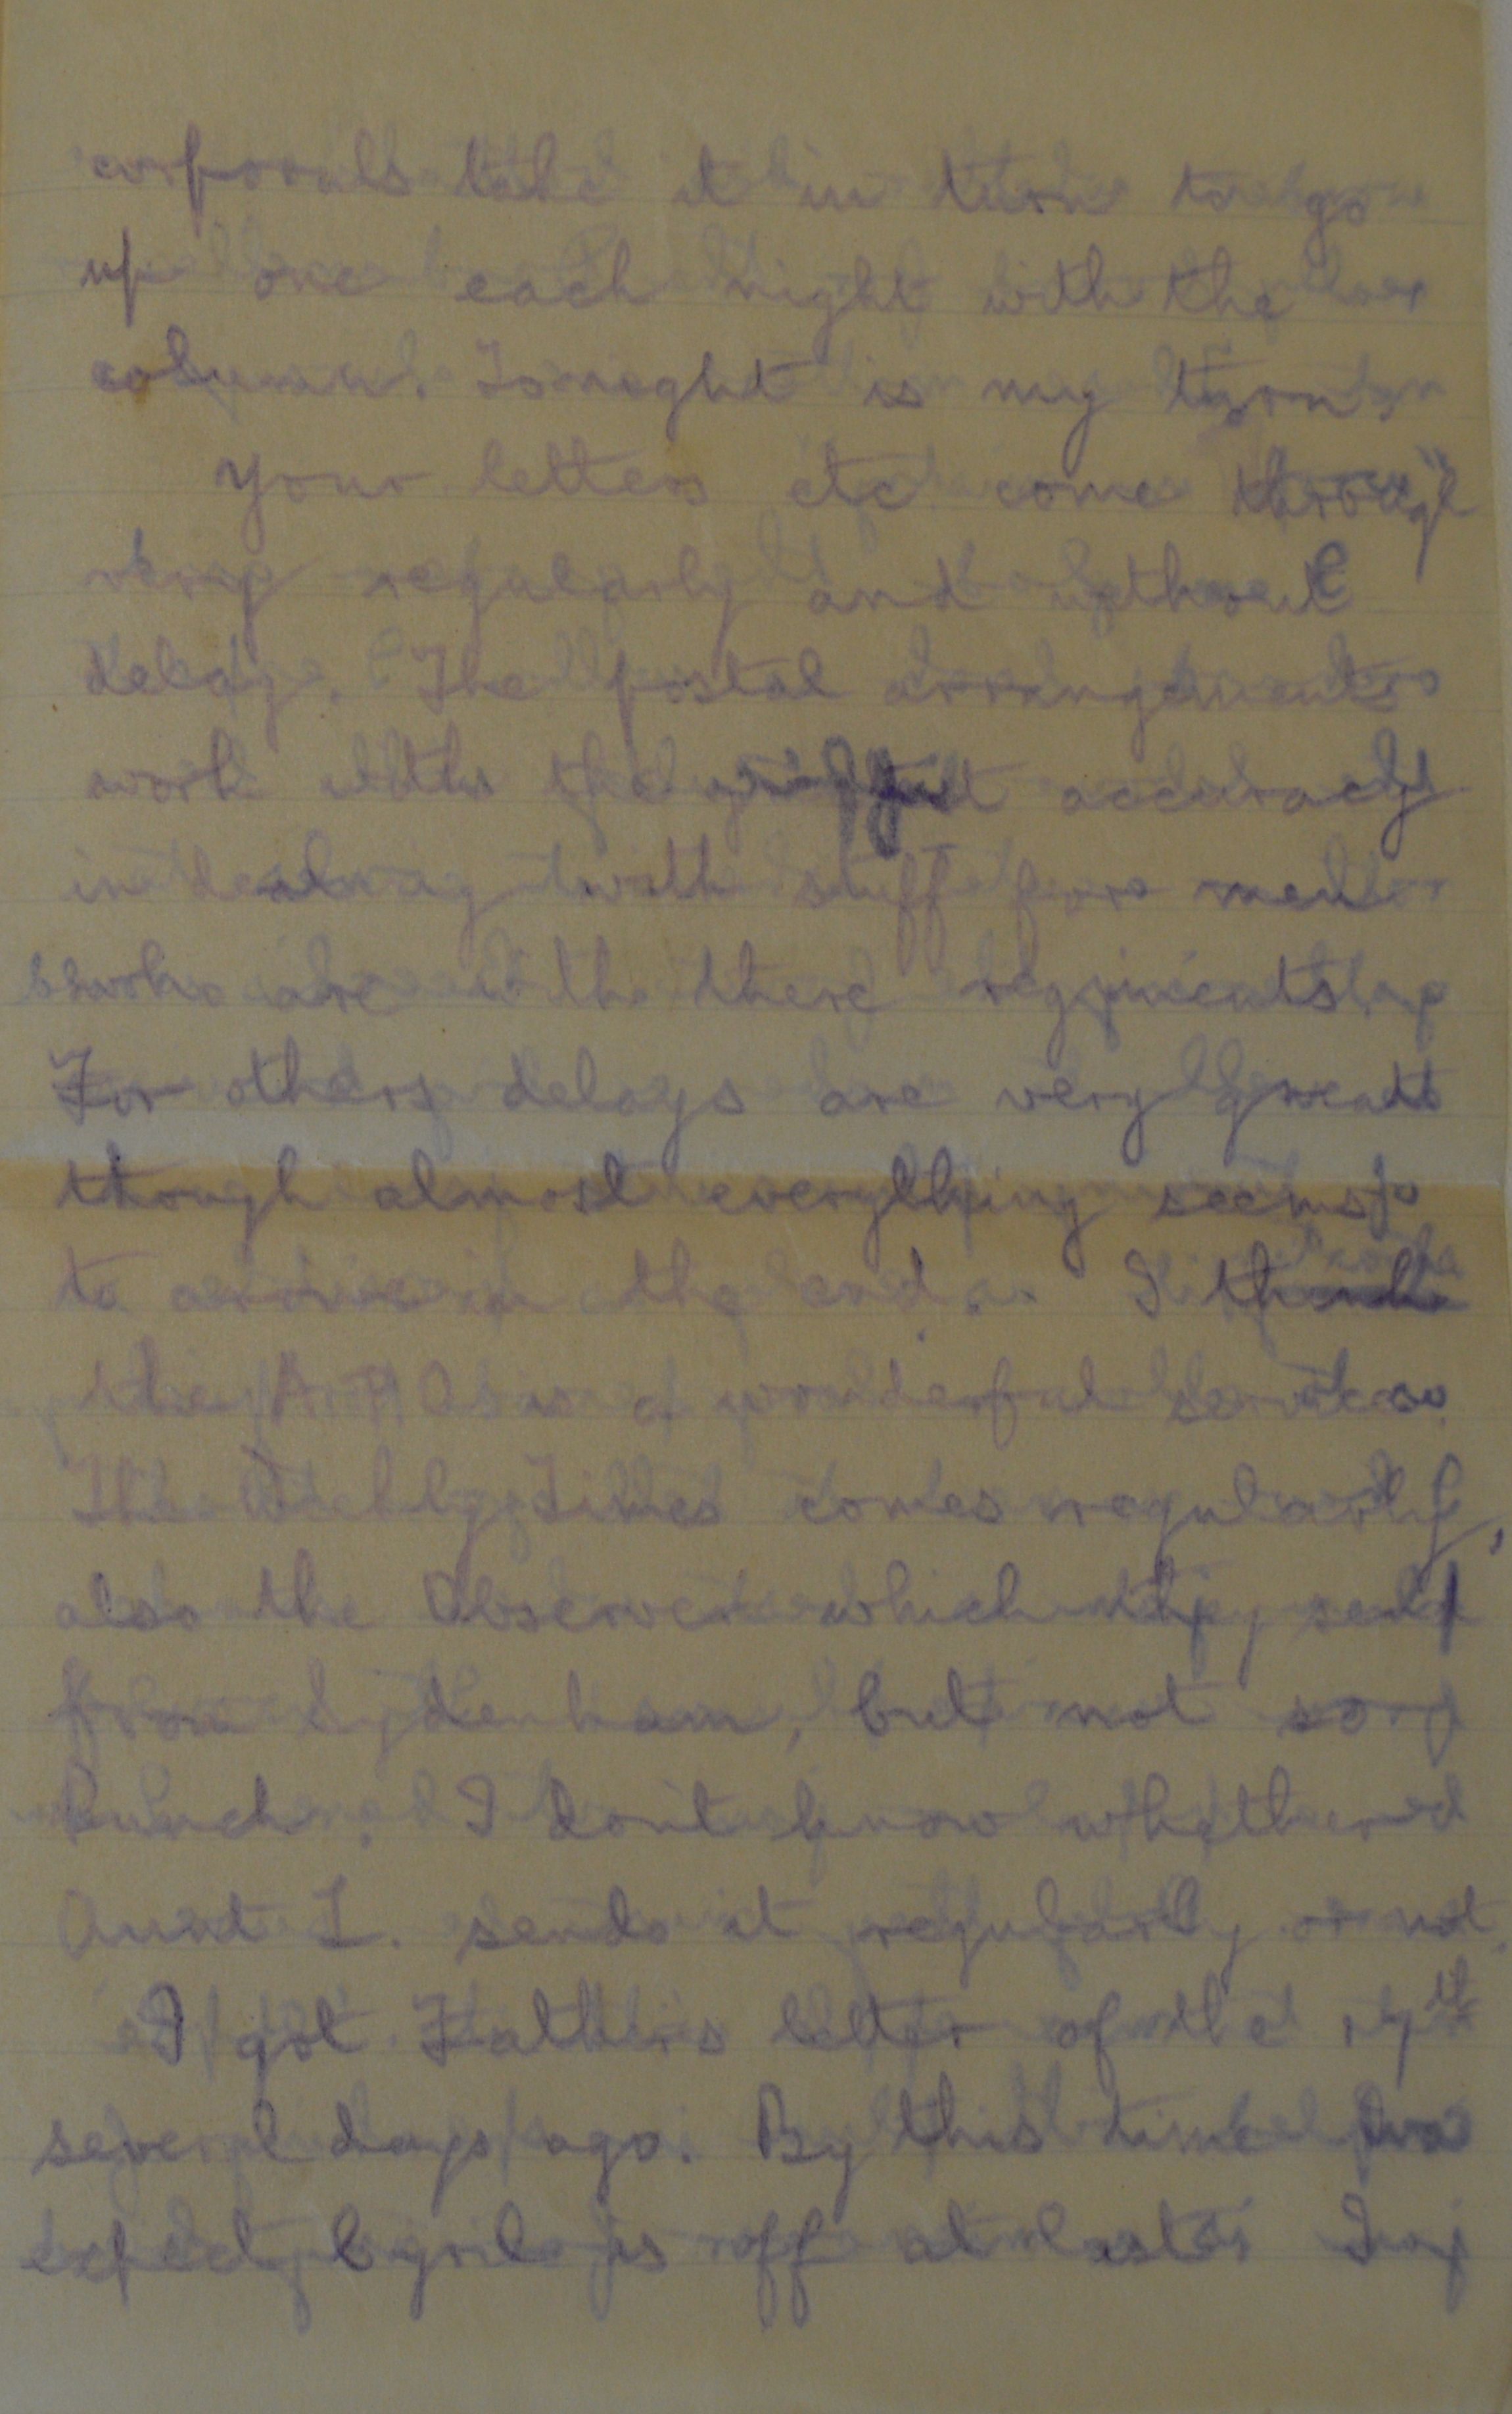 corporals take it in turn to go
up one each night with the
column. Tonight is my turn.
Your letters etc come through
very regularly and without
delay. The postal arrangements
work with the accuracy
in dealing with stuff for men
who are with there regiments.
For others delays are very great
though almost everything seems
to arrive in the end. I think
the A.P.O. is a wonderful service.
The Weekly Times comes regularly,
also the Observer which they send
from Sydenham, but not so
Punch. I dont know whether
Aunt L. sends it regularly or not.
I got Fathers letter of the 17th
several days ago. By this time
expect Cyril is off at last. I